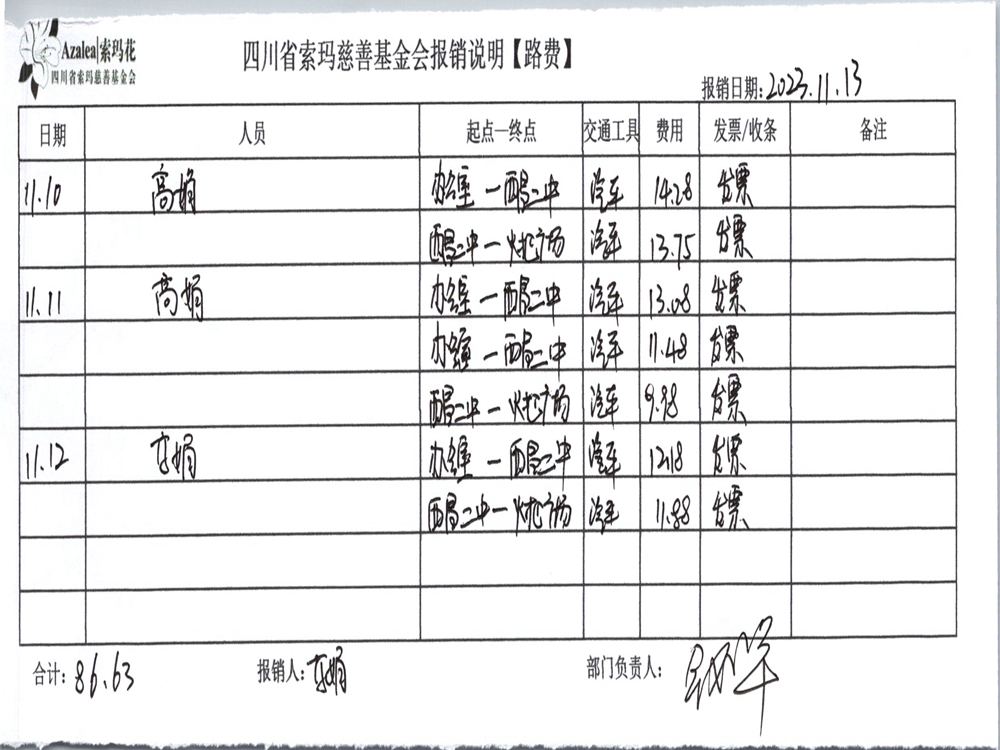 Azalea|索玛花
四川省索玛慈善基金会
四川省索玛慈善基金会报销说明【路费】
报销日期：2023.11.13
日期 人员 起点—终点 交通工具 费用 发票/收条 备注
11.10 高娟 办公室—西昌二中 汽车 14.28 发票
西昌二中—火把广场 汽车 13.75 发票
11.11 高娟 办公室—西昌二中 汽车 13.08 发票
办公室—西昌二中 汽车 11.48 发票
西昌二中—火把广场 汽车 9.98 发票
11.12 高娟 办公室—西昌二中 汽车 12.18 发票
西昌二中—火把广场 汽车 11.88 发票
合计：86.63 报销人：高娟 部门负责人：